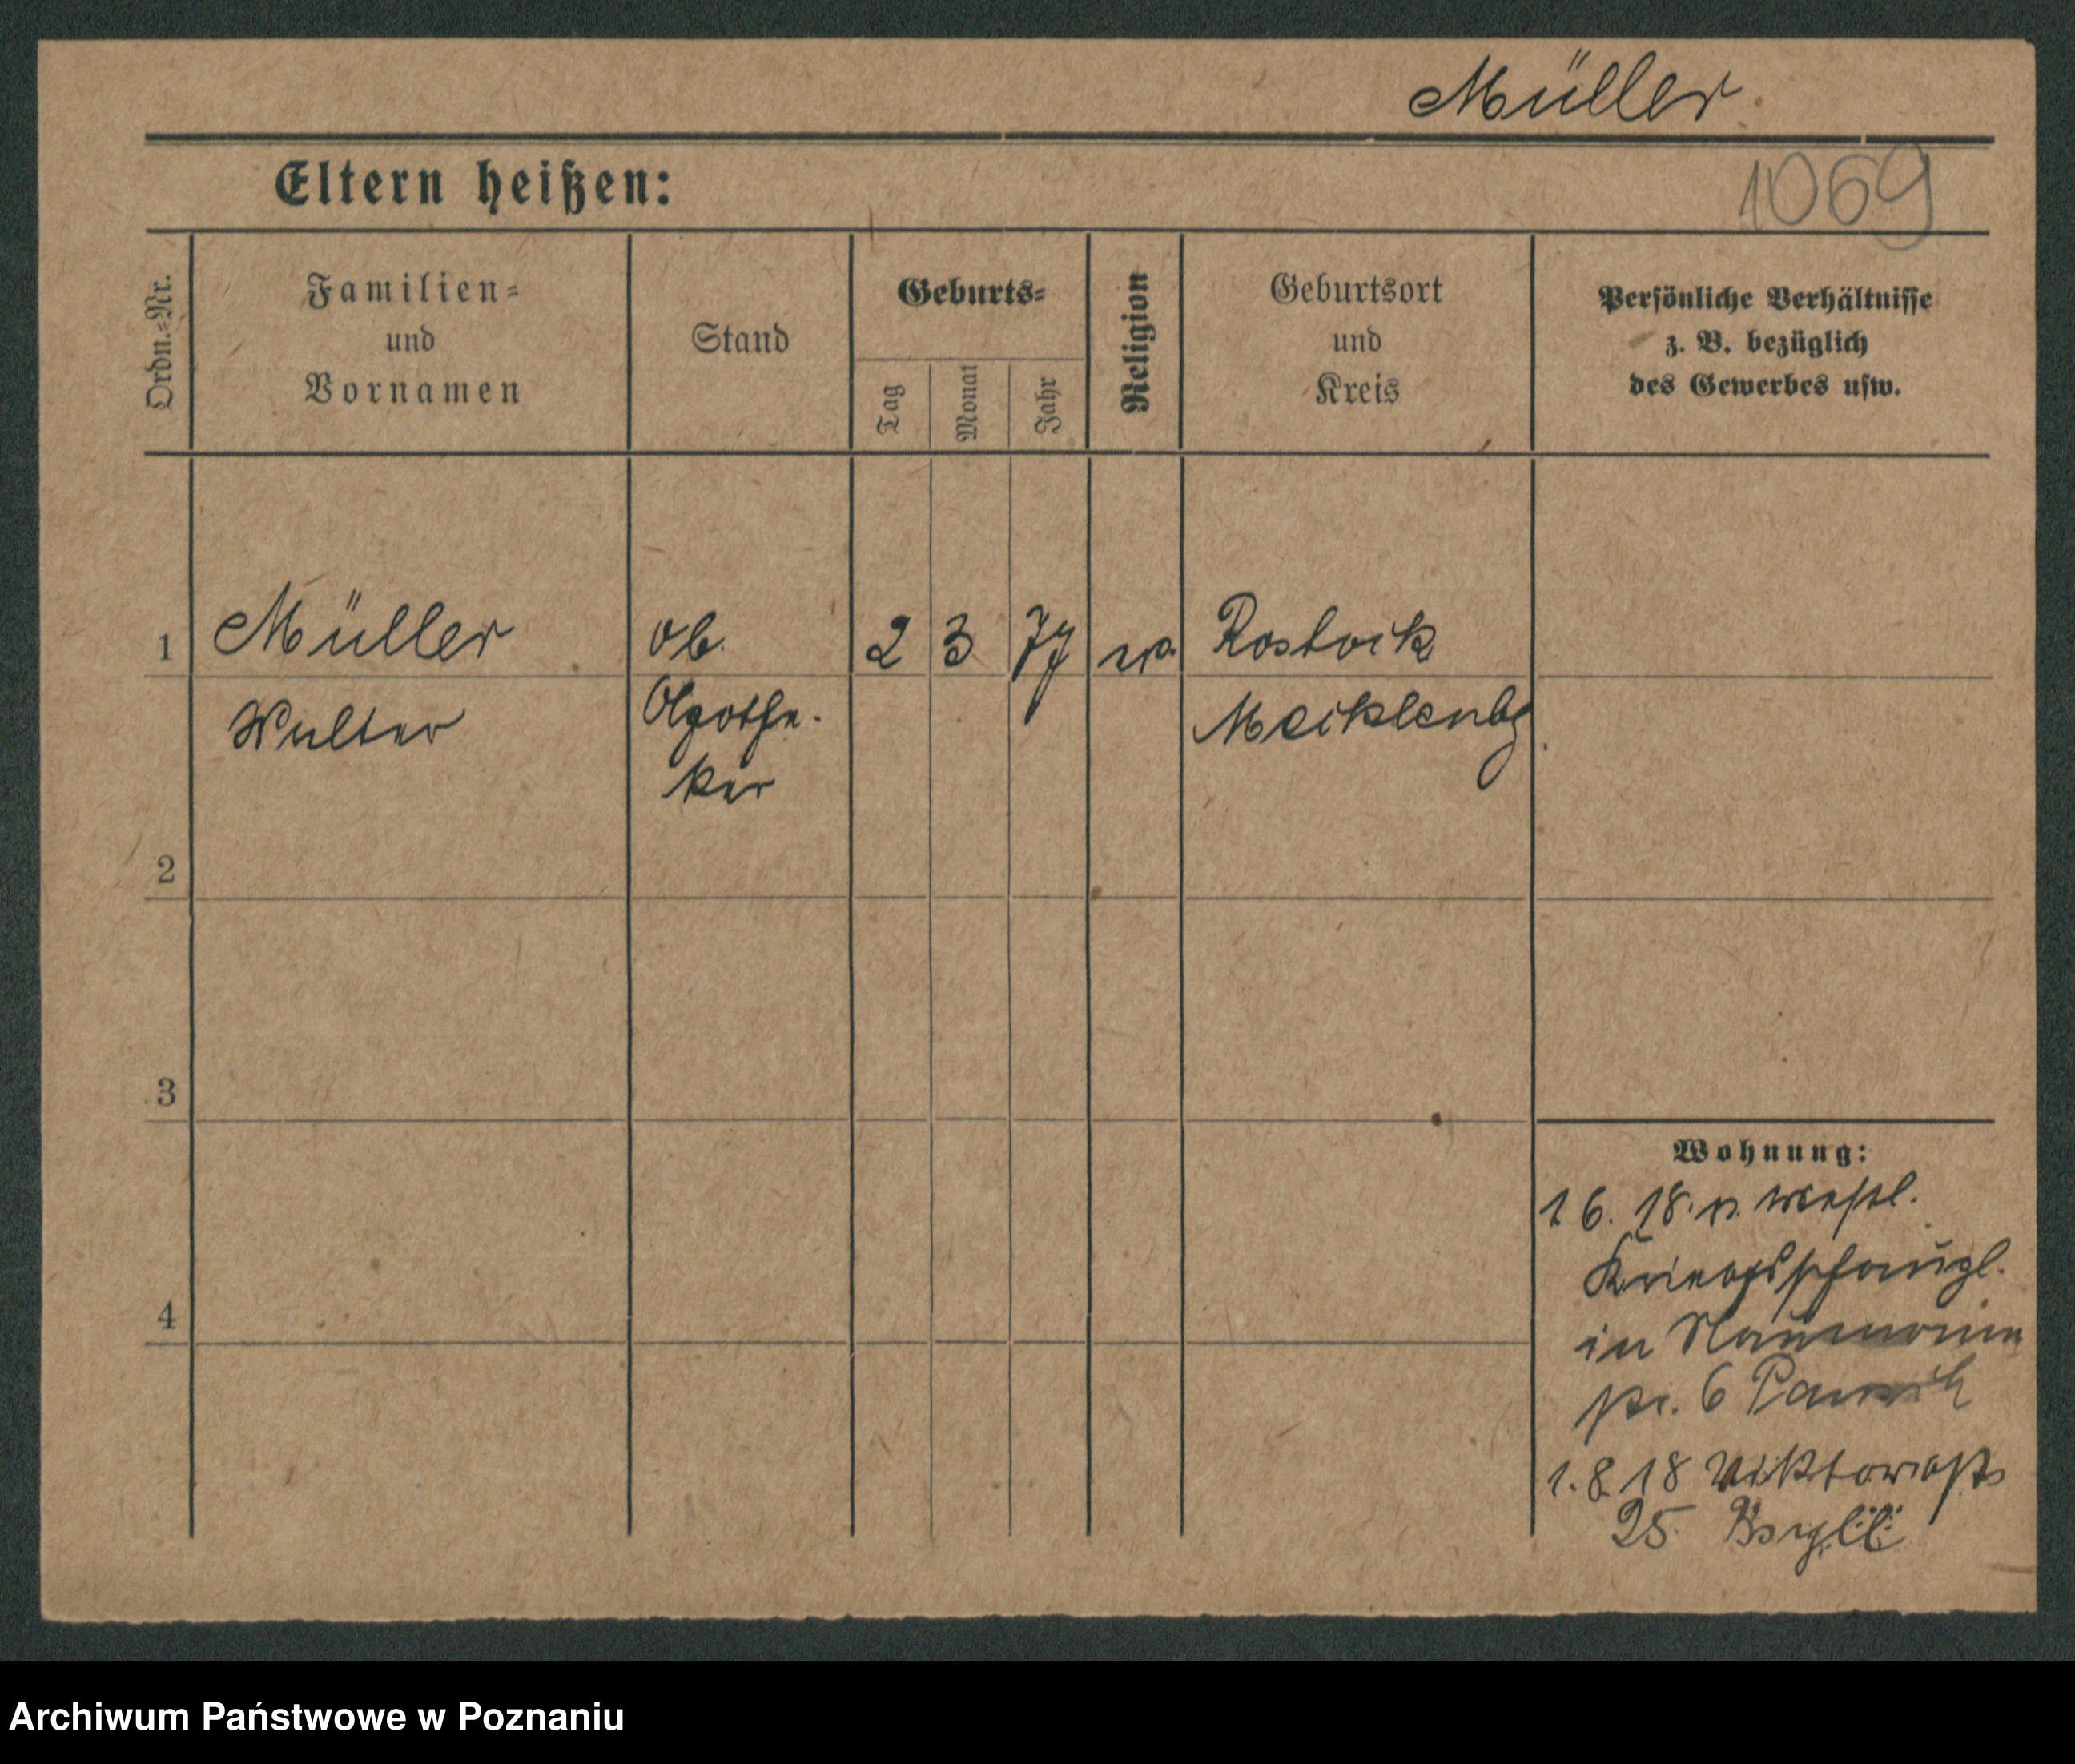 Müller
1069
Eltern heißen:
Ordn.-Nr.
Familien-
und
Vornamen
Stand
Geburts-
Tag
Monat
Jahr
Religion
Geburtsort
und
Kreis
Persönliche Verhältnisse
z. B. bezüglich
des Gewerbes usw.
1
Müller
ob.
2
3
77
ev.
Rostock
Walter
Apothe-
Mecklenbg
ker
2
3
4
Wohnung:
1 6. 18. v.
in Naumann
str. 6
1. 8. 18 Viktoriastr
25
Archiwum Państwowe w Poznaniu